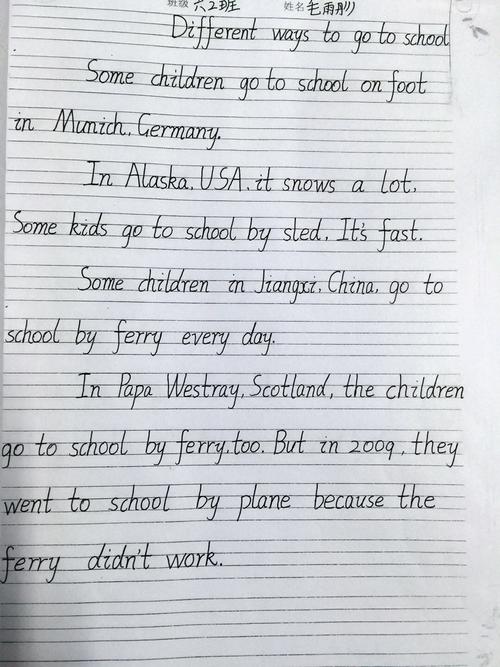 班级 六2班 姓名 毛雨彤
Different ways to go to school
Some children go to school on foot
in Munich, Germany.
In Alaska, USA, it snows a lot.
Some kids go to school by sled. It's fast.
Some children in Jiangxi, China, go to
school by ferry every day.
In Papa Westray, Scotland, the children
go to school by ferry, too. But in 2009, they
went to school by plane because the
ferry didn't work.